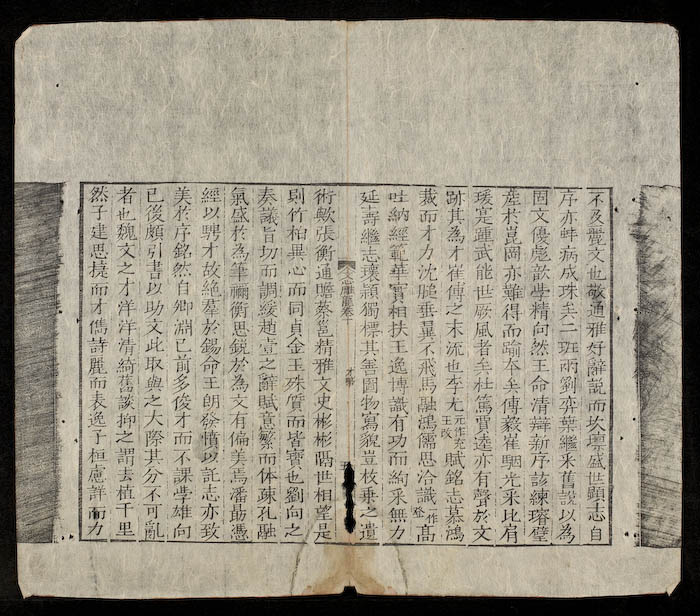 不及麗文也敬通雅好辭說而坎壈盛世顯志自
序亦蚌病成珠矣二班兩劉弈葉繼采舊說以為
固文優彪歆學精向然王命清辯新序該練璿璧
產於崑岡亦難得而踰本矣傅毅崔駰光采比肩
瑗寔踵武能世厥風者矣杜篤賈逵亦有聲於文
跡其為才崔傅之末流也李尤元作充王改賦銘志慕鴻
裁而才力沈膇垂翼不飛馬融鴻儒思洽識一作登高
吐納經範華實相扶王逸博識有功而絢采無力
延壽繼志瓌穎獨標其善圖物寫貌豈枚乘之遺
卷十
才畧
術歟張衡通贍蔡邕精雅文史彬彬隔世相望是
則竹柏異心而同貞金玉殊質而皆寶也劉向之
奏議旨切而調緩趙壹之辭賦意繁而體疎孔融
氣盛於為筆禰衡思銳於為文有偏美焉潘勗憑
經以騁才故絕羣於錫命王朗發憤以託志亦致
美於序銘然自卿淵已前多俊才而不課學雄向
已後頗引書以助文此取與之大際其分不可亂
者也魏文之才洋洋清綺舊談抑之謂去植千里
然子建思捷而才儁詩麗而表逸子桓慮詳而力